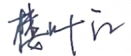 楼叶江